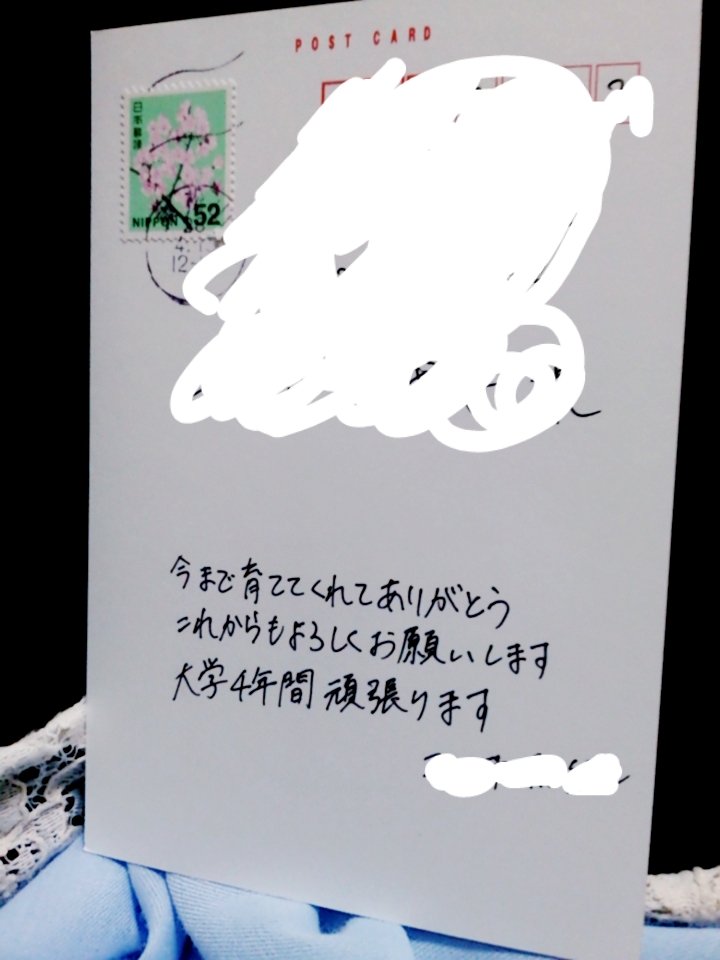 POST CARD
日本郵便
NIPPON 52
今まで育ててくれてありがとう
これからもよろしくお願いします
大学4年間頑張ります